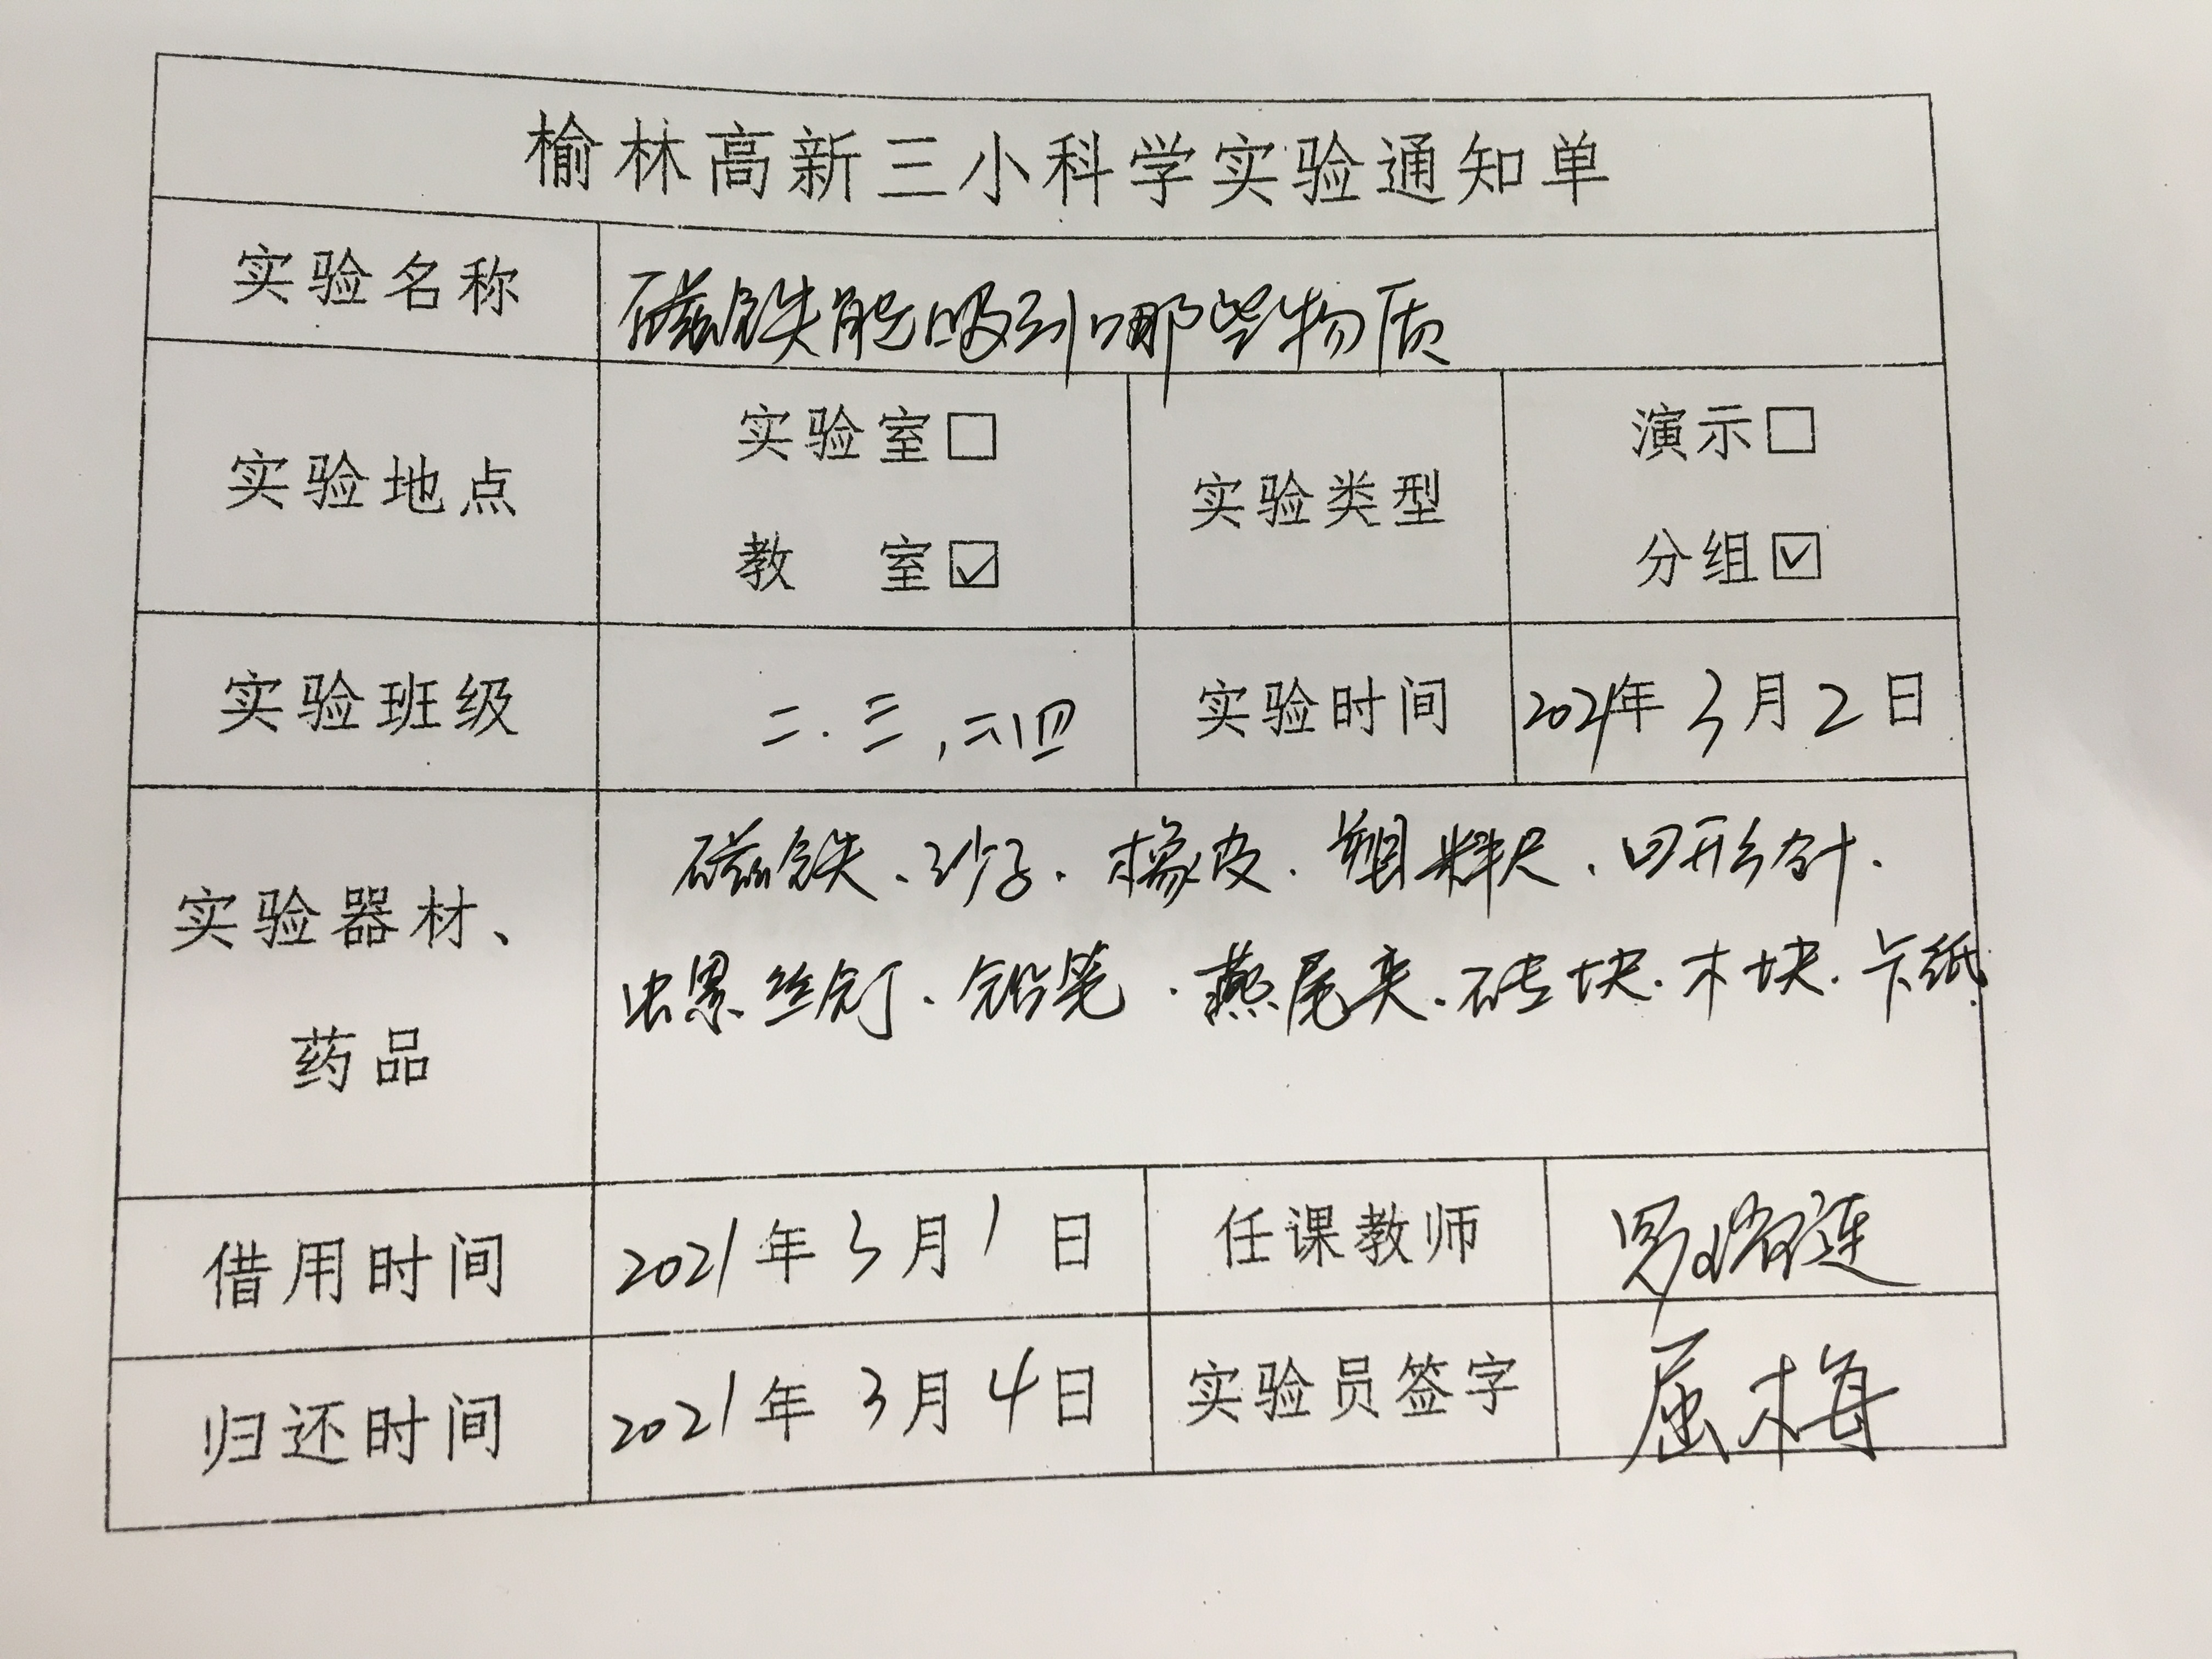 榆林高新三小科学实验通知单
实验名称 磁铁能吸到哪些物质
实验地点 实验室□ 教 室☑ 实验类型 演示□ 分组☑
实验班级 二.三,二四 实验时间 2021年3月2日
实验器材、药品 磁铁、砂子.橡皮.塑料尺.回形针.
螺丝钉.铅笔.燕尾夹.砖块.木块.卡纸.
借用时间 2021年3月1日 任课教师
归还时间 2021年3月4日 实验员签字 屈梅